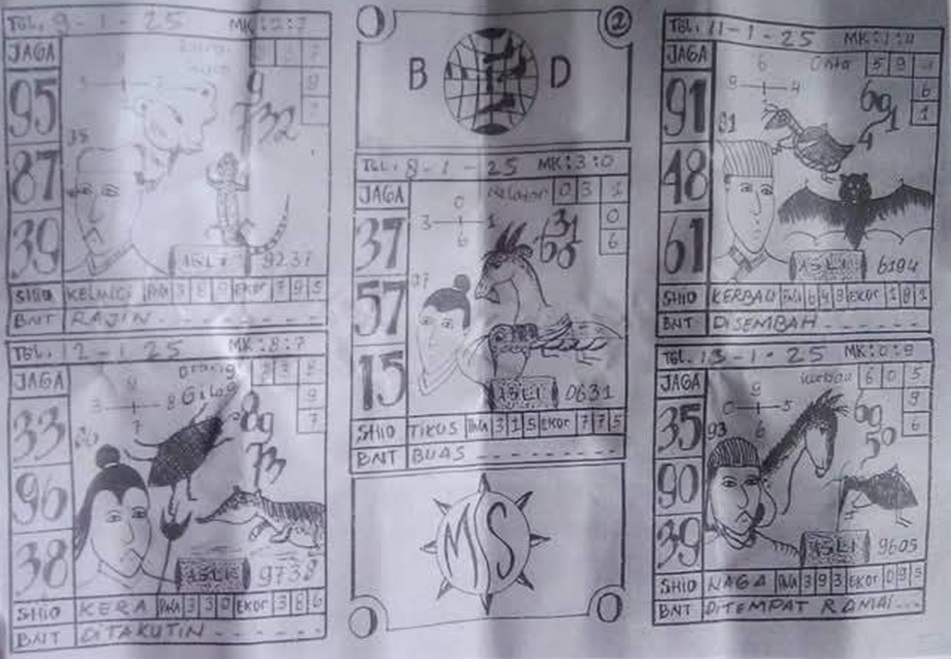 TGL. 9-1-25 MK:2:7
JAGA
95
87
39
9
732
35
ASLI 9237
SHIO KELINCI PNA 3 8 9 EKOR 7 9 5
BNT RAJIN
2
B D
TGL. 8-1-25 MK:3:0
JAGA 0 3 1
0 0
3 1 6
6
37
57
15
31
68
07
ASLI 0631
SHIO TIKUS PNA 3 1 5 EKOR 7 7 5
BNT BUAS
MS
TGL. 11-1-25 MK:1:4
JAGA Onta 5 9
6 6
8 4 1
91
48
61
691
4
91
ASLI 6194
SHIO KERBAU PNA 6 4 8 EKOR 1 8 1
BNT DISEMBAH
TGL. 12-1-25 MK:8:7
JAGA Orang 2 3 8
9 Gila 9
3 8 7
7
33
96
38
89
73
ASLI 9738
SHIO KERA PNA 3 3 0 EKOR 3 8 6
BNT DITAKUTIN
TGL. 13-1-25 MK:0:9
JAGA kerbau 6 0 5
9 9
0 5 6
6
35
90
39
69
50
93
ASLI 9605
SHIO NAGA PNA 3 9 3 EKOR 0 9 5
BNT DITEMPAT RAMAI